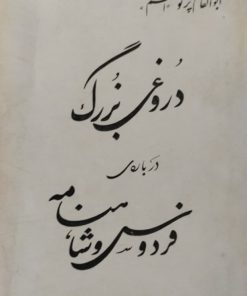 ابوالقاسم پرتو اعظم:
دروغی بزرگ
درباره‌ی
فردوسی و شاهنامه